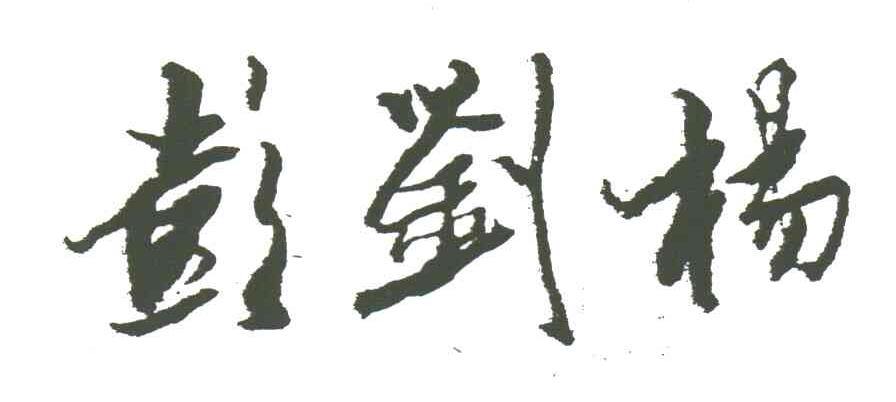 彭劉楊